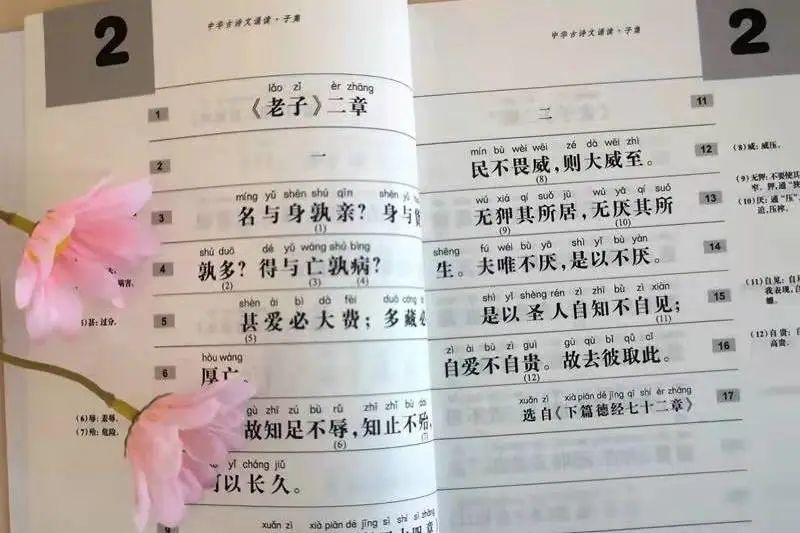 2
中华古诗文诵读·子集
lǎo zǐ èr zhāng
1
《老子》二章
2
一
míng yǔ shēn shú qīn shēn yǔ
3
名与身孰亲？身与
(1)
shú duō dé yǔ wáng shú bìng
4
孰多？得与亡孰病？
(2) (3) (4)
shèn ài bì dà fèi duō cáng
5
甚爱必大费；多藏必
(5)
(5)甚：过分。
hòu wáng
6
厚亡。
gù zhī zú bù rǔ zhī zhǐ bù
故知足不辱，知止不殆，
(6) (7)
(6)辱：羞辱。
(7)殆：危险。
yǐ cháng jiǔ
可以长久。
xuǎn zì xià piān dé jīng sì shí sì zhāng
9
2
中华古诗文诵读·子集
二
11
mín bù wèi wēi zé dà wēi zhì
民不畏威，则大威至。
12
(8)
(8)威：威压。
wú xiá qí suǒ jū wú yā qí suǒ
无狎其所居，无厌其所
13
(9) (10)
(9)无狎：不要使其
(10)厌：通“压”
迫、压榨。
shēng fú wéi bù yā shì yǐ bù yàn
生。夫唯不厌，是以不厌。
14
shì yǐ shèng rén zì zhī bù zì xiàn
是以圣人自知不自见；
15
(11)
(11)自见：自
我表现，
zì ài bù zì guì gù qù bǐ qǔ cǐ
自爱不自贵。故去彼取此。
16
(12)
(12)自贵：自
高贵。
xuǎn zì xià piān dé jīng qī shí èr zhāng
选自《下篇德经七十二章》
17